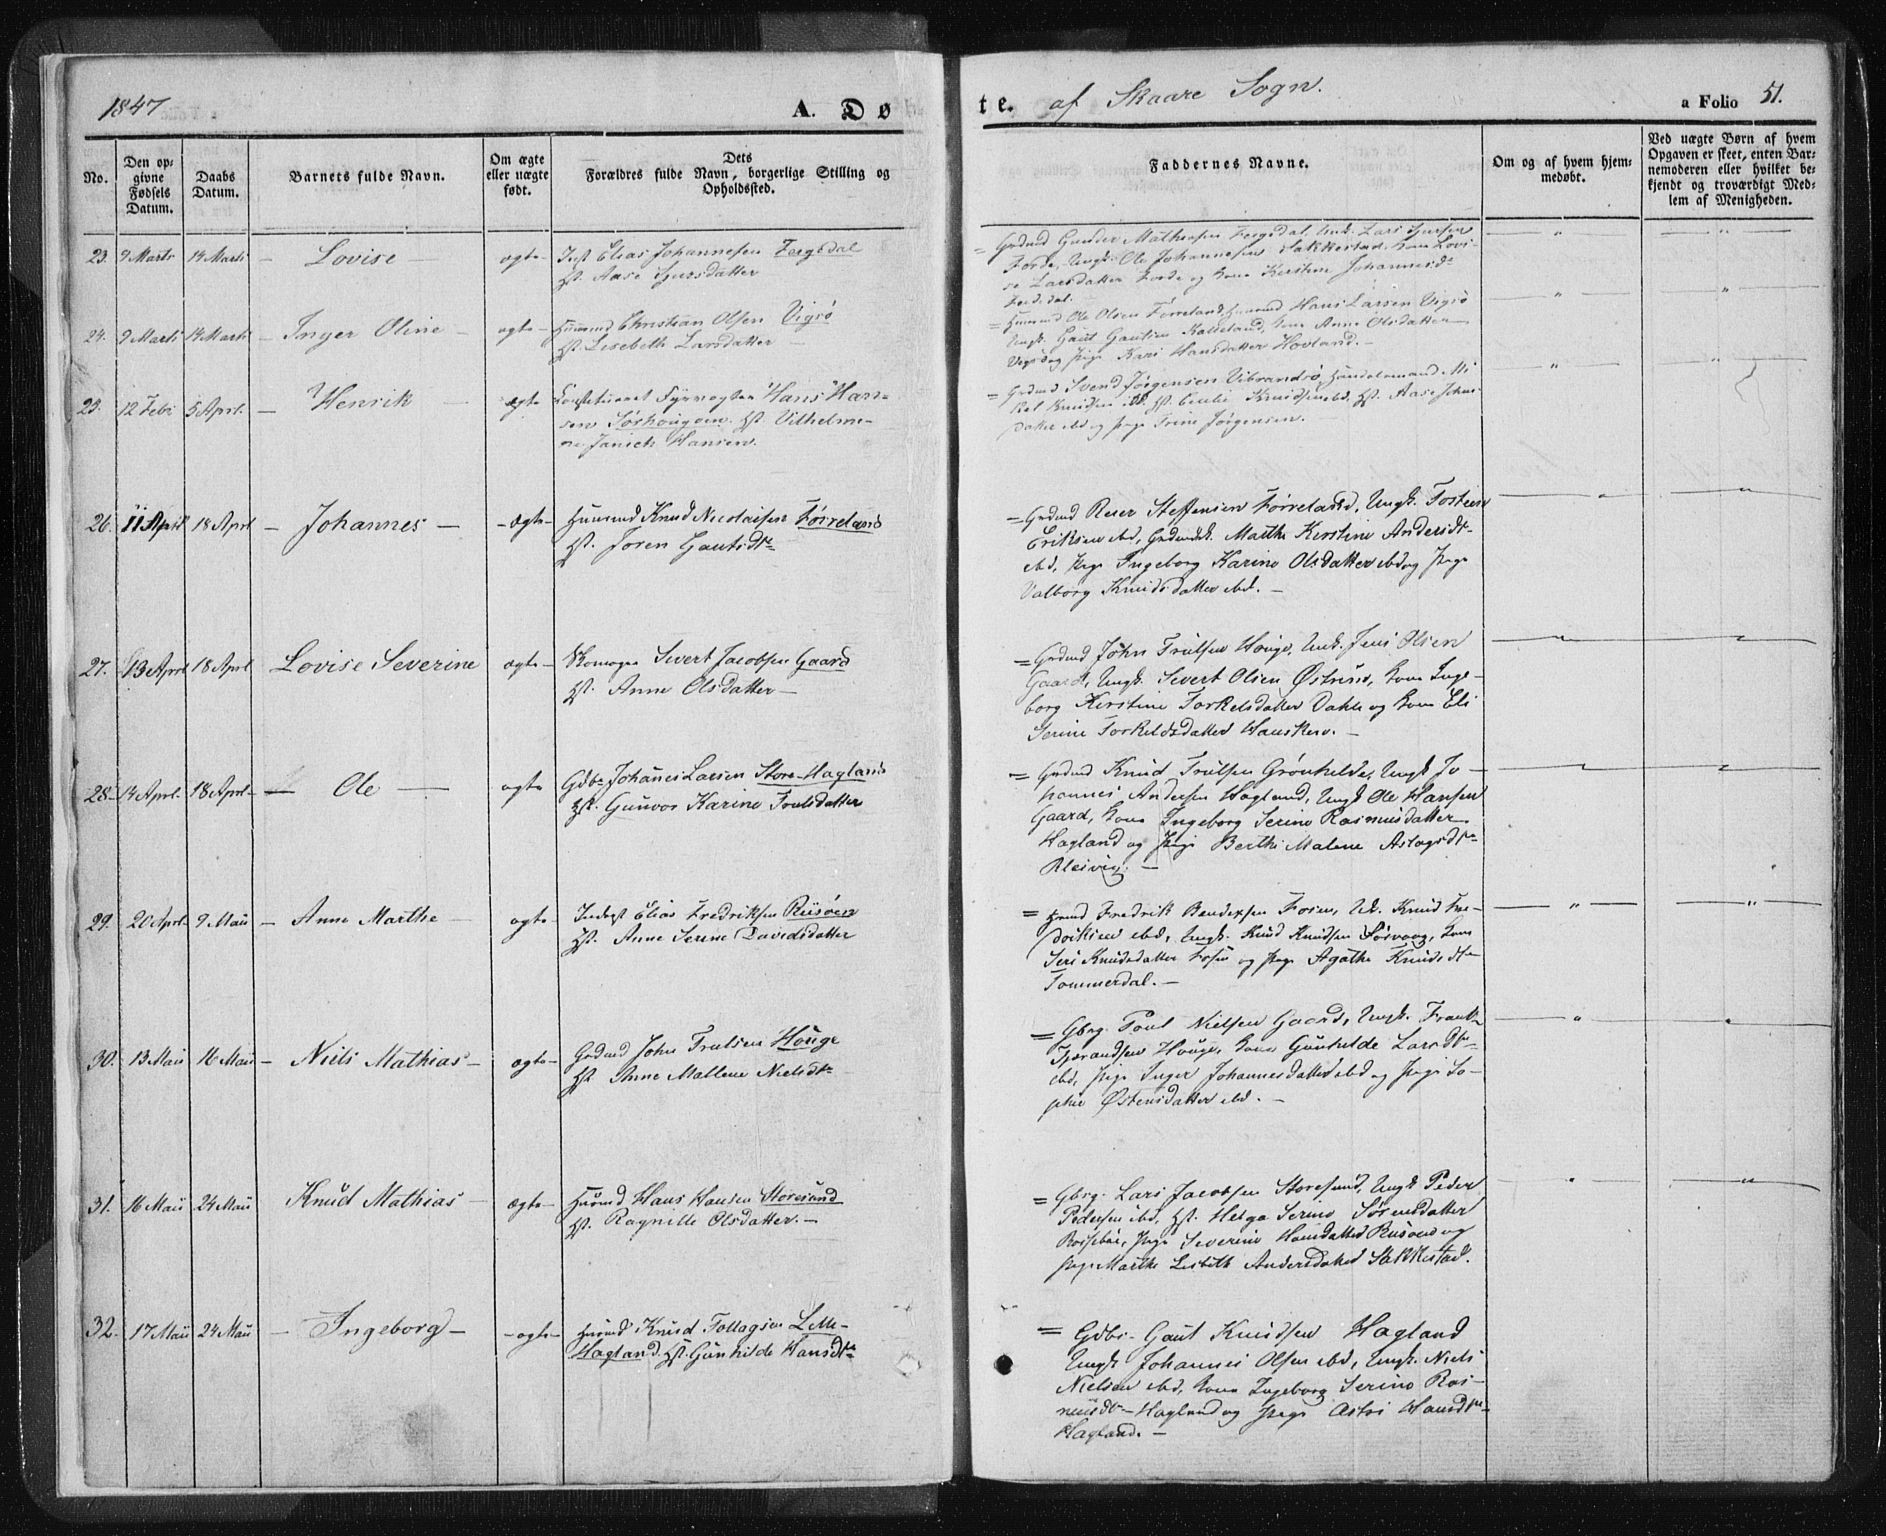 1847
A. Dø
te. af Skaare Sogn.
a Folio 51.
No.
Den op-
givne
Fødsels
Datum.
Daabs
Datum.
Barnets fulde Navn.
Om ægte
eller uægte
født.
Dets
Forældres fulde Navn, borgerlige Stilling og
Opholdssted.
Faddernes Navne.
Om og af hvem hjem-
medøbt.
Ved uægte Børn af hvem
Opgaven er skeet, enten Bar-
nemoderen eller hvilket be-
kjendt og troværdigt Med-
lem af Menigheden.
23. 9 Marts 14 Marts – Lovise – ægte
Inst Elias Johannesen
Hst. Aase
= Grdmd Gunder Mathiasen Ungk. Lars
Førde, Ungk. Ole Johannesen Sakkestad, Kone Lovi-
se Larsdatter Førde og Kone Kirstine Johannesdr
24. 9 Marts 14 Marts – Inger Oline – ægte –
Huusmd Christian Olsen Vigsø
Hst. Lisebeth Larsdatter –
= Huusmd Ole Olsen Førreland, Huusmd Hans Larsen Vigsø
Ungk. Gaut Gautsen Kone Anne Olsdatter
Vigsø og Pige Kari Hansdatter Hovland. –
25. 12 Febr 5 Aprl. – Henrik – ægte
Constitueret Fyrvogter Hans Han-
sen Sørhougøen. Hst. Vilhelmi-
ne Janich Hansen.
= Grdmd Svend Jørgensen Vibrandsø, Handelsmand Mi-
kel Knudsen ibd. Hst. Knudsen ibd, Hst. Aase
datter ibd og Pige Trine Jørgensen.
26. 11 April 18 Aprl – Johannes – – ægte –
Huusmd Knud Nicolaisen Førreland
Hst. Joren Gautsdtr
= Grdmd Reier Steffensen Førreland, Ungk. Tosten
Eriksen ibd, Marthe Kirstine Andersdtr
ibd, Pige Ingeborg Karine Olsdatter ibd og Pige
Valborg Knudsdatter ibd. –
27. 13 Aprl 18 Aprl Lovise Severine ægte –
Skomager Sivert Jacobsen Gaard
Hst. Anne Olsdatter –
= Grdmd John Trulsen Houge, Ungk. Jens Olsen
Gaard, Ungk. Sivert Olsen Østrem, Kone Inge-
borg Kirstine Torkelsdatter Dahle og Kone Eli
Serine Torkeldsdatter Hauskev. –
28 – 14 Aprl. 18 Aprl – – Ole – ægte
Gdbr Johanes Larsen Store-Hagland
Hst. Gunvor Karine Poulsdatter
= Grdmd Knud Trulsen Grønhilde, Ungk Jo-
hannes Andersen Hagland, Ungk Ole Hansen
Gaard, Kone Ingeborg Serine Rasmusdatter
Hagland og Pige Berthe Malene Aslagsdtr
Kleivig. –
29. 20 Aprl. 9 Mai – Anne Marthe – ægte –
Inderst Elias Fredriksen Risøen
Hst. Anne Serine Davidsdatter
= Grmd Fredrik Bendixen Fosen, Uk. Knud Fre-
driksen ibd, Ungk. Knud Knudsen Sørvaag, Kone
Siri Knudsdatter Fosen og Pige Agathe Knudsdtr
Tommerdal. –
30. 13 Mai 16 Mai – Niels Mathias – ægte –
Grdmd John Trulsen Houge
Hst Anne Mallene Nielsdtr
= Gbrg. Poul Nielsen Gaard, Ungk.
Tjerandsen Houge, Kone Gunhilde Larsdtr
ibd, Pige Inger Johannesdatter ibd og Pige So-
phie Østensdatter ibd. –
31. 16 Mai 24 Mai Knud Mathias – ægte –
Huusmd Hans Hansen Storesund
Hst. Ragnille Olsdatter. –
= Gbrg. Lars Jacobsen Storesund, Ungk Peder
Pedersen ibd, Hst. Helga Serine Sørensdatter
Rossebø, Pige Severine Hansdatter Risøen og
Pige Marthe Lisbeth Andersdatter Sakkestad.
32. 17 Mai 24 Mai – Ingeborg – – ægte –
Huusmd Knud Tollagsen Lille-
Hagland. Hst. Gunhilde Hansdtr
= Gdbr. Gaut Knudsen Hagland
Ungk Johannes Olsen ibd, Ungk. Niels
Nielsen ibd, Kone Ingeborg Serine Ras-
musdtr – Hagland og Pige Astri Hansdtr
Hagland. –